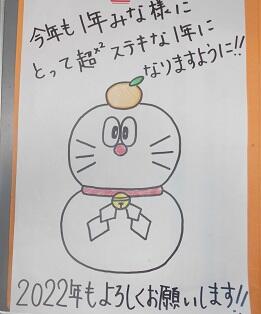 今年も1年みな様に
とって超×² ステキな1年に
なりますように!!
2022年もよろしくお願いします!!